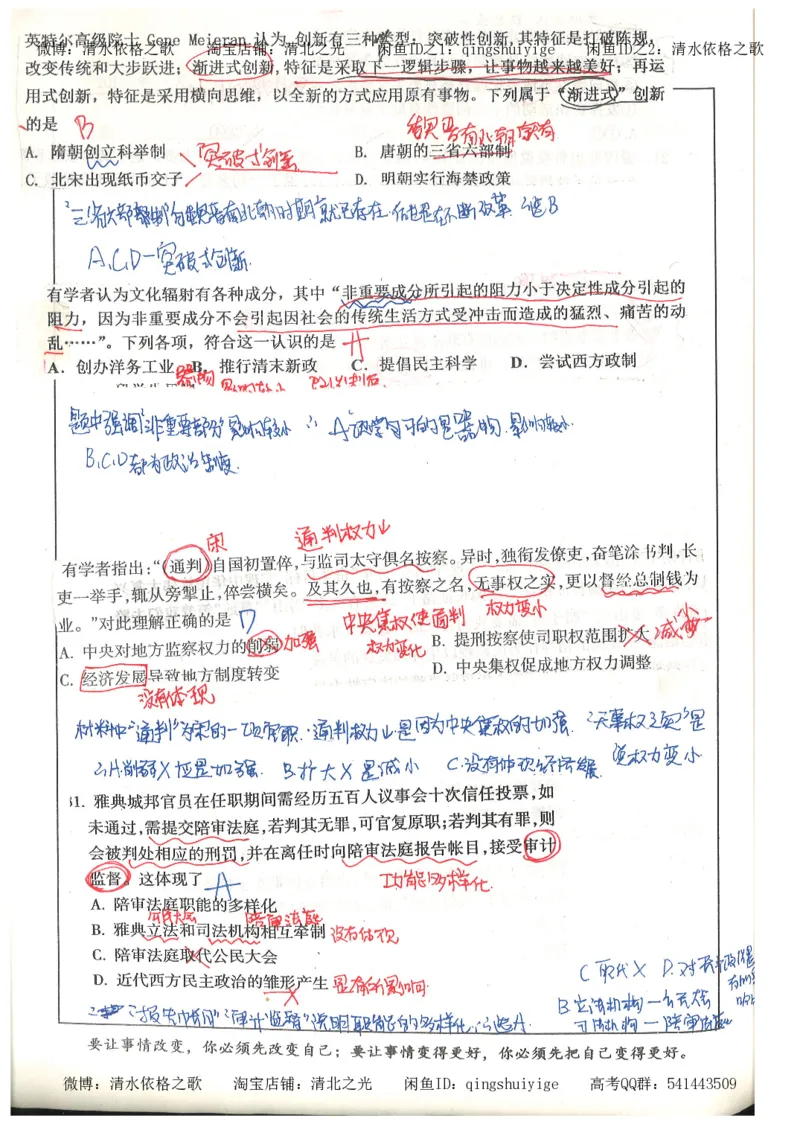 英特尔高级院士 Gene Meieran 认为,创新有三种类型:突破性创新,其特征是打破陈规,
微博:清水依格之歌 淘宝店铺:清北之光 闲鱼ID之1:qingshuiyige 闲鱼ID之2:清水依格之歌
改变传统和大步跃进;渐进式创新,特征是采取下一逻辑步骤,让事物越来越美好;再运
用式创新,特征是采用横向思维,以全新的方式应用原有事物。下列属于“渐进式”创新
的是 B
A. 隋朝创立科举制 突破式创新 B. 唐朝的三省六部制
C. 北宋出现纸币交子 D. 明朝实行海禁政策
A、C、D—突破式创新
有学者认为文化辐射有各种成分,其中“非重要成分所引起的阻力小于决定性成分引起的
阻力,因为非重要成分不会引起因社会的传统生活方式受冲击而造成的猛烈、痛苦的动
乱……”。下列各项,符合这一认识的是 A
A. 创办洋务工业 B. 推行清末新政 C. 提倡民主科学 D. 尝试西方政制
器物
B、C、D都为政治制度.
宋 通判权力小
有学者指出:“(通判)自国初置倅,与监司太守俱名按察。异时,独衔发僚吏,奋笔涂书判,长
吏一举手,辄从旁掣止,倅尝横矣。及其久也,有按察之名,无事权之实,更以督经总制钱为
业。”对此理解正确的是 D 中央集权使通判 权力变小
A. 中央对地方监察权力的削弱 加强 权力变化 B. 提刑按察使司职权范围扩大 减少
C. 经济发展导致地方制度转变 D. 中央集权促成地方权力调整
没有体现
材料中“通判”为宋的一项官职.通判权力小是因为中央集权的加强.“无事权之实”是
说权力变小
31. 雅典城邦官员在任职期间需经历五百人议事会十次信任投票,如
未通过,需提交陪审法庭,若判其无罪,可官复原职;若判其有罪,则
会被判处相应的刑罚,并在离任时向陪审法庭报告帐目,接受审计
监督。这体现了 A 功能多样化.
A. 陪审法庭职能的多样化
公民大会 陪审法庭
B. 雅典立法和司法机构相互牵制 没有体现
C. 陪审法庭取代公民大会
D. 近代西方民主政治的雏形产生
B 立法机构—公民大会
司法机构—陪审法庭
要让事情改变,你必须先改变自己;要让事情变得更好,你必须先把自己变得更好。
微博:清水依格之歌 淘宝店铺:清北之光 闲鱼ID:qingshuiyige 高考QQ群:541443509